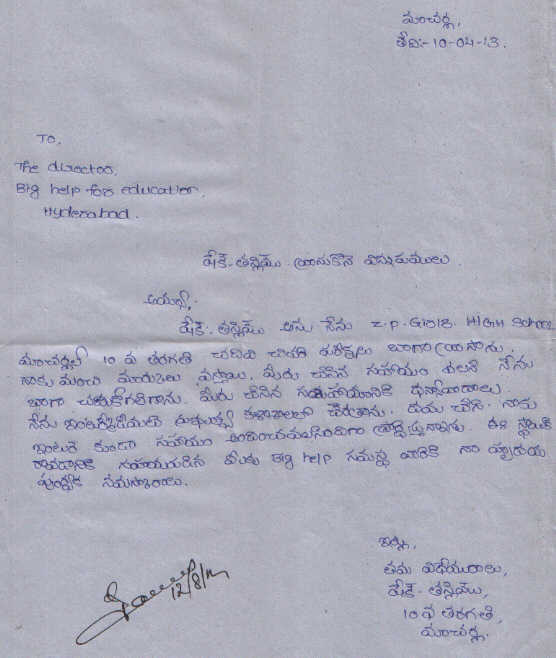 మాచర్ల,
తేది:- 10-04-13.
TO,
The director,
Big help for education,
Hyderabad.
షేక్. తస్లిము వ్రాసుకొనే విన్నపములు.
అయ్యా,
షేక్. తస్లిము అను నేను Z.P. Girls. HIGH School
మాచర్లలో 10 వ తరగతి చదివి పరీక్షలు బాగా వ్రాసాను.
నాకు మంచి మార్కులు వస్తాయి. మీరు చేసిన సహాయం వలన నేను
బాగా చదువుకోగలిగాను. మీరు చేసిన సహాయానికి ధన్యవాదాలు.
నేను ఇంటర్మీడియట్ ప్రభుత్వ కళాశాలలో చేరుతాను. దయ చేసి నాకు
ఇంటర్ కు కూడా సహాయం అందించవలసిందిగా ప్రార్థిస్తున్నాను. ఈ స్థాయికి
రావడానికి సహాయపడిన మీకు Big help సంస్థ వారికి నా హృదయ
పూర్వక నమస్కారాలు.
ఇట్లు,
తమ విధేయురాలు,
షేక్. తస్లిము,
10 వ తరగతి,
మాచర్ల.
12/8/